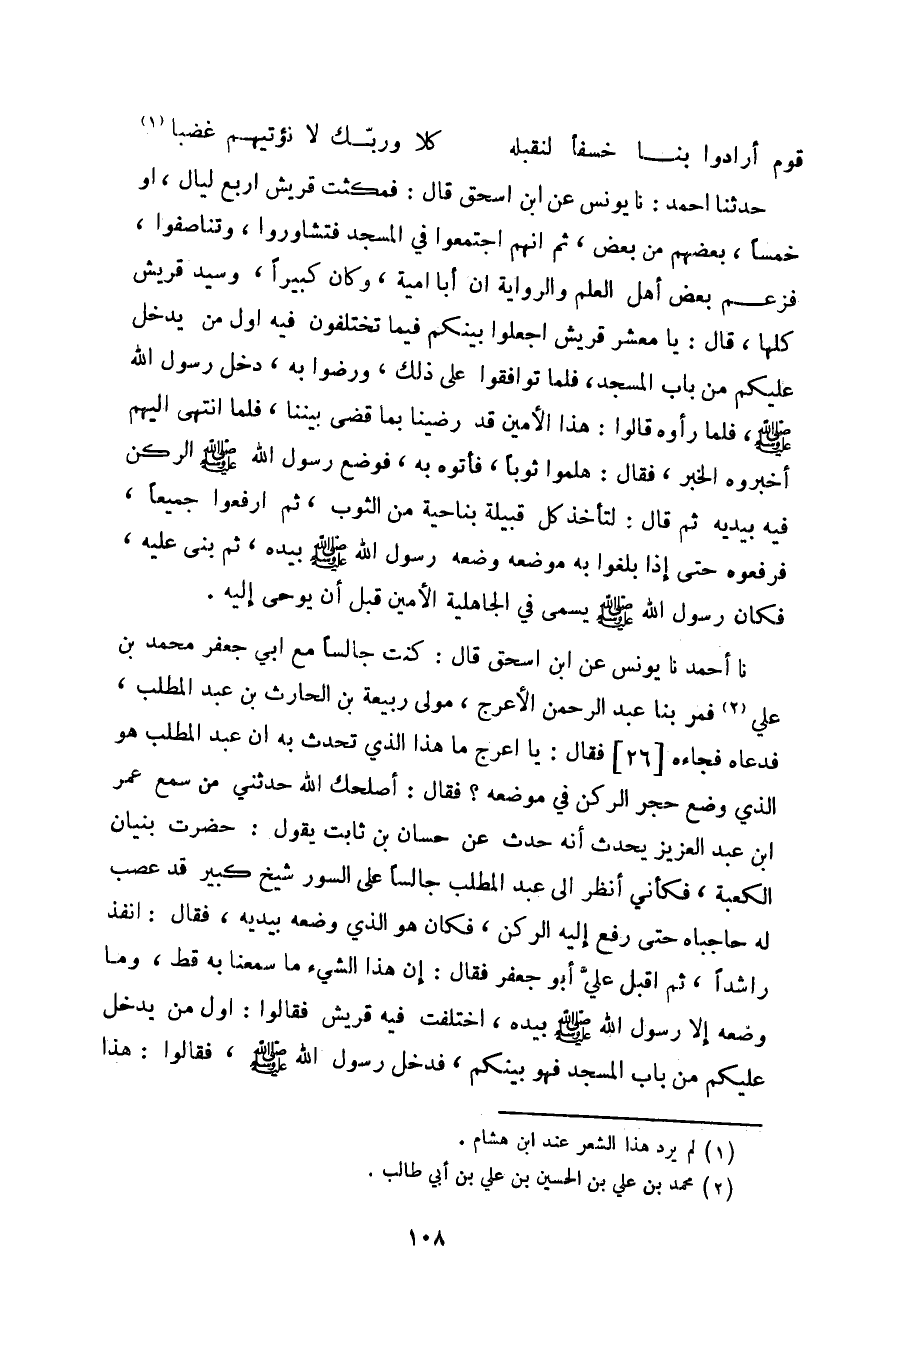 قوم أرادوا بنـــا خسفاً لنقبله كلا وربّـك لا نؤتيهـم غضبا (١)
حدثنا احمد : نا يونس عن ابن اسحق قال : فمكثت قريش اربع ليال ، او
خمساً ، بعضهم من بعض ، ثم انهم اجتمعوا في المسجد فتشاوروا ، وتناصفوا ،
فزعـــم بعض أهل العلم والرواية ان أبا امية ، وكان كبيراً ، وسيد قريش
كلها ، قال : يا معشر قريش اجعلوا بينكم فيما تختلفون فيه اول من يدخل
عليكم من باب المسجد ، فلما توافقوا على ذلك ، ورضوا به ، دخل رسول الله
ﷺ ، فلما رأوه قالوا : هذا الأمين قد رضينا بما قضى بيننا ، فلما انتهى اليهم
أخبروه الخبر ، فقال : هلموا ثوباً ، فأتوه به ، فوضع رسول الله ﷺ الركن
فيه بيديه ثم قال : لتأخذ كل قبيلة بناحية من الثوب ، ثم ارفعوا جميعاً ،
فرفعوه حتى إذا بلغوا به موضعه وضعه رسول الله ﷺ بيده ، ثم بنى عليه ،
فكان رسول الله ﷺ يسمى في الجاهلية الأمين قبل أن يوحى إليه .
نا أحمد نا يونس عن ابن اسحق قال : كنت جالساً مع ابي جعفر محمد بن
علي (٢) فمر بنا عبد الرحمن الأعرج ، مولى ربيعة بن الحارث بن عبد المطلب ،
فدعاه فجاءه [٢٦] فقال : يا اعرج ما هذا الذي تحدث به ان عبد المطلب هو
الذي وضع حجر الركن في موضعه ؟ فقال : أصلحك الله حدثني من سمع عمر
ابن عبد العزيز يحدث أنه حدث عن حسان بن ثابت يقول : حضرت بنيان
الكعبة ، فكأني أنظر الى عبد المطلب جالساً على السور شيخ كبير قد عصب
له حاجباه حتى رفع إليه الركن ، فكان هو الذي وضعه بيديه ، فقال : انفذ
راشداً ، ثم اقبل عليّ أبو جعفر فقال : إن هذا الشيء ما سمعنا به قط ، وما
وضعه إلا رسول الله ﷺ بيده ، اختلفت فيه قريش فقالوا : اول من يدخل
عليكم من باب المسجد فهو بينكم ، فدخل رسول الله ﷺ ، فقالوا : هذا
(١) لم يرد هذا الشعر عند ابن هشام .
(٢) محمد بن علي بن الحسين بن علي بن أبي طالب .
١٠٨